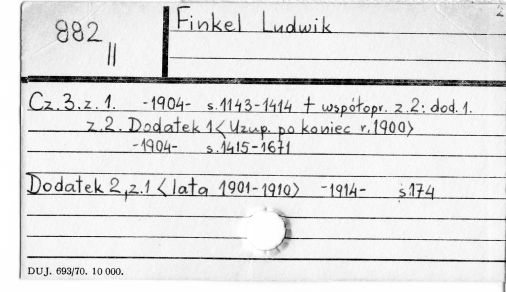 2
Finkel Ludwik
882
II
Cz. 3. z. 1. -1904- s. 1143-1414 + współopr. z. 2: dod. 1.
z. 2. Dodatek 1 <Uzup. po koniec r. 1900>
-1904- s. 1415-1671
Dodatek 2, z. 1 <lata 1901-1910> -1914- s 174
DUJ. 693/70. 10 000.